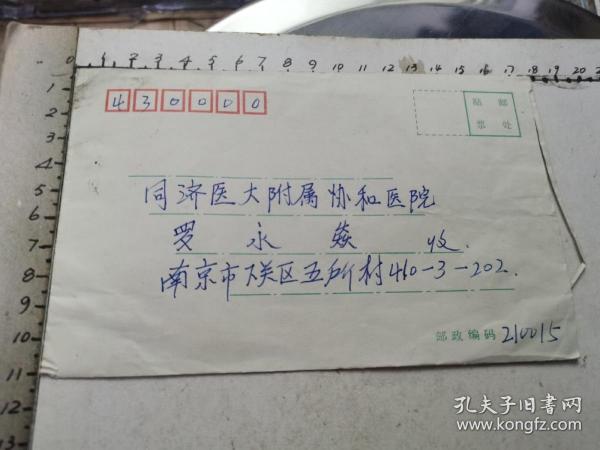 0 1 2 3 4 5 6 7 8 9 10 11 12 13 14 15 16 17 18 19 20
1
2
3
4
5
6
7
8
9
10
11
12
13
430000
贴 邮
票 处
同济医大附属协和医院
罗永焱 收.
南京市下关区五所村460-3-202.
邮政编码 210015
孔夫子旧书网
www.kongfz.com